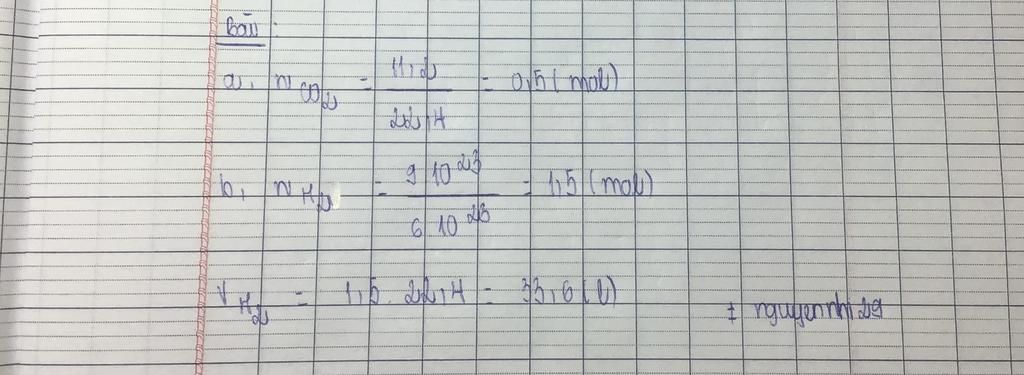 Bài :
a, n CO₂ = 11,2 / 22,4 = 0,5 (mol)
b, n H₂ = 9 10²³ / 6 10²³ = 1,5 (mol)
V H₂ = 1,5 . 22,4 = 33,6 (l)
# nguyennhi29